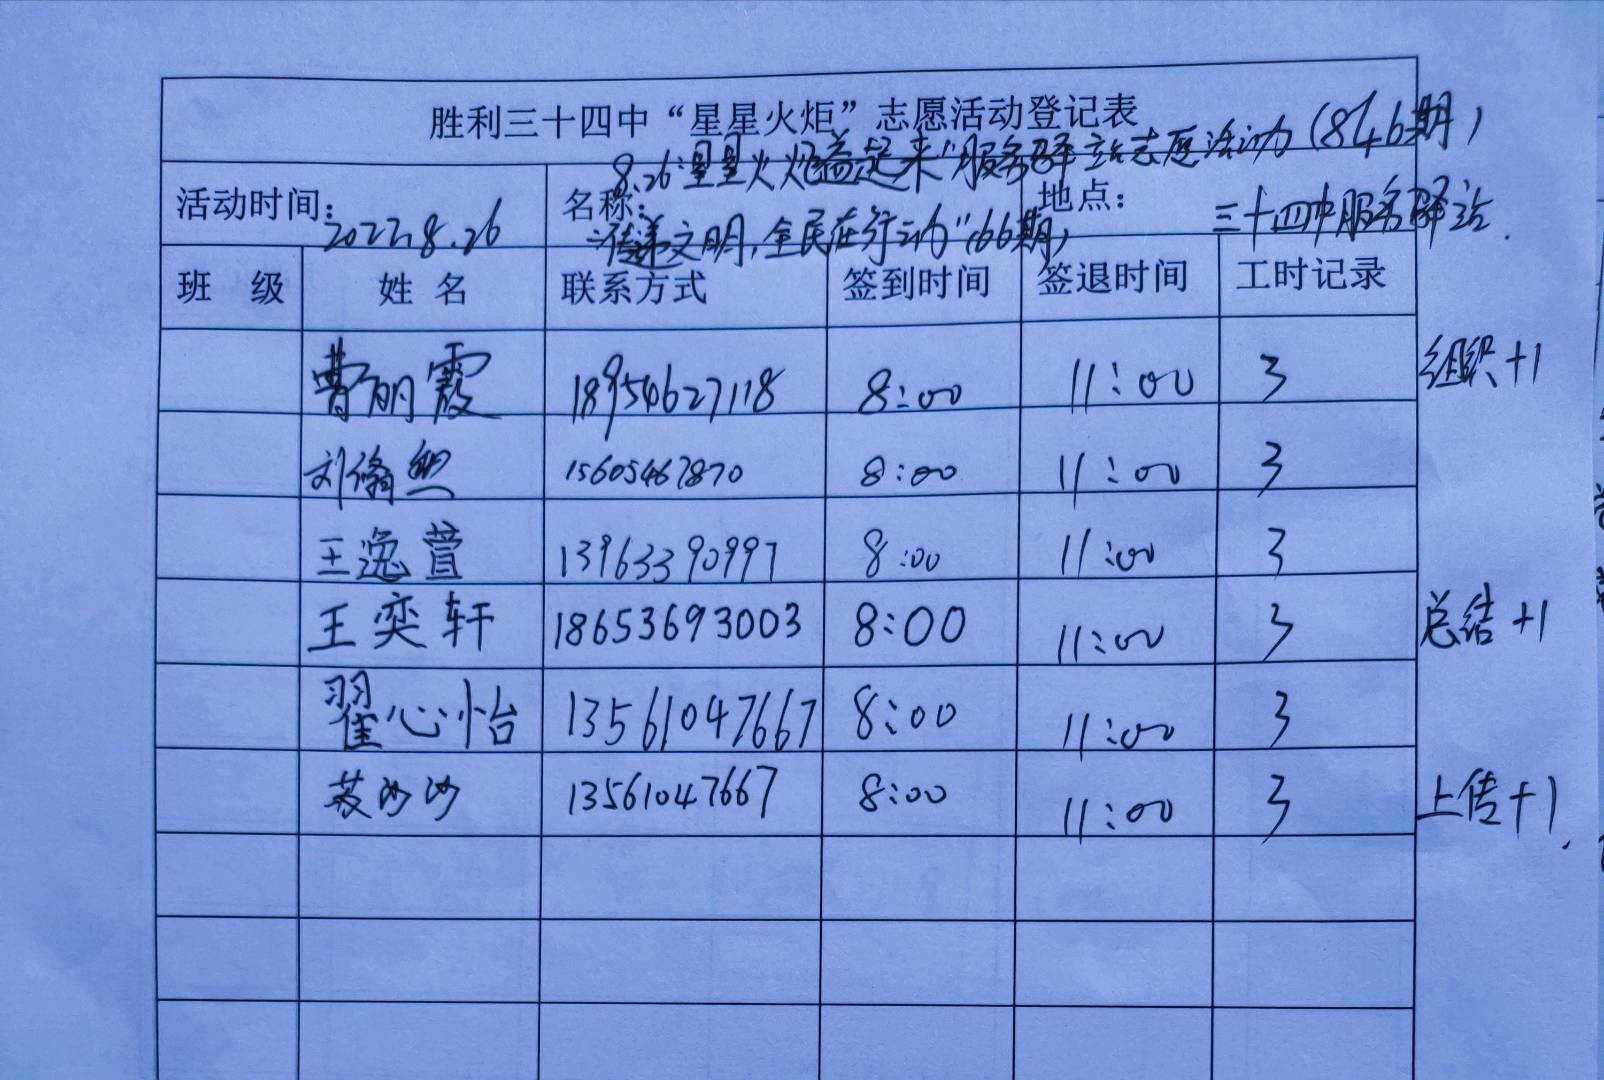 胜利三十四中“星星火炬”志愿活动登记表
8.26“星星火炬益起来”服务驿站志愿活动(846期)
活动时间: 2022.8.26 名称: 地点: 三十四中服务驿站.
“传递文明,全民在行动”(66期)
班 级 姓 名 联系方式 签到时间 签退时间 工时记录
曹丽霞 18954627118 8:00 11:00 3 组织+1
刘翛然 15605467870 8:00 11:00 3
王逸萱 13963390997 8:00 11:00 3
王奕轩 18653693003 8:00 11:00 3 总结+1
翟心怡 13561047667 8:00 11:00 3
苏沙沙 13561047667 8:00 11:00 3 上传+1.